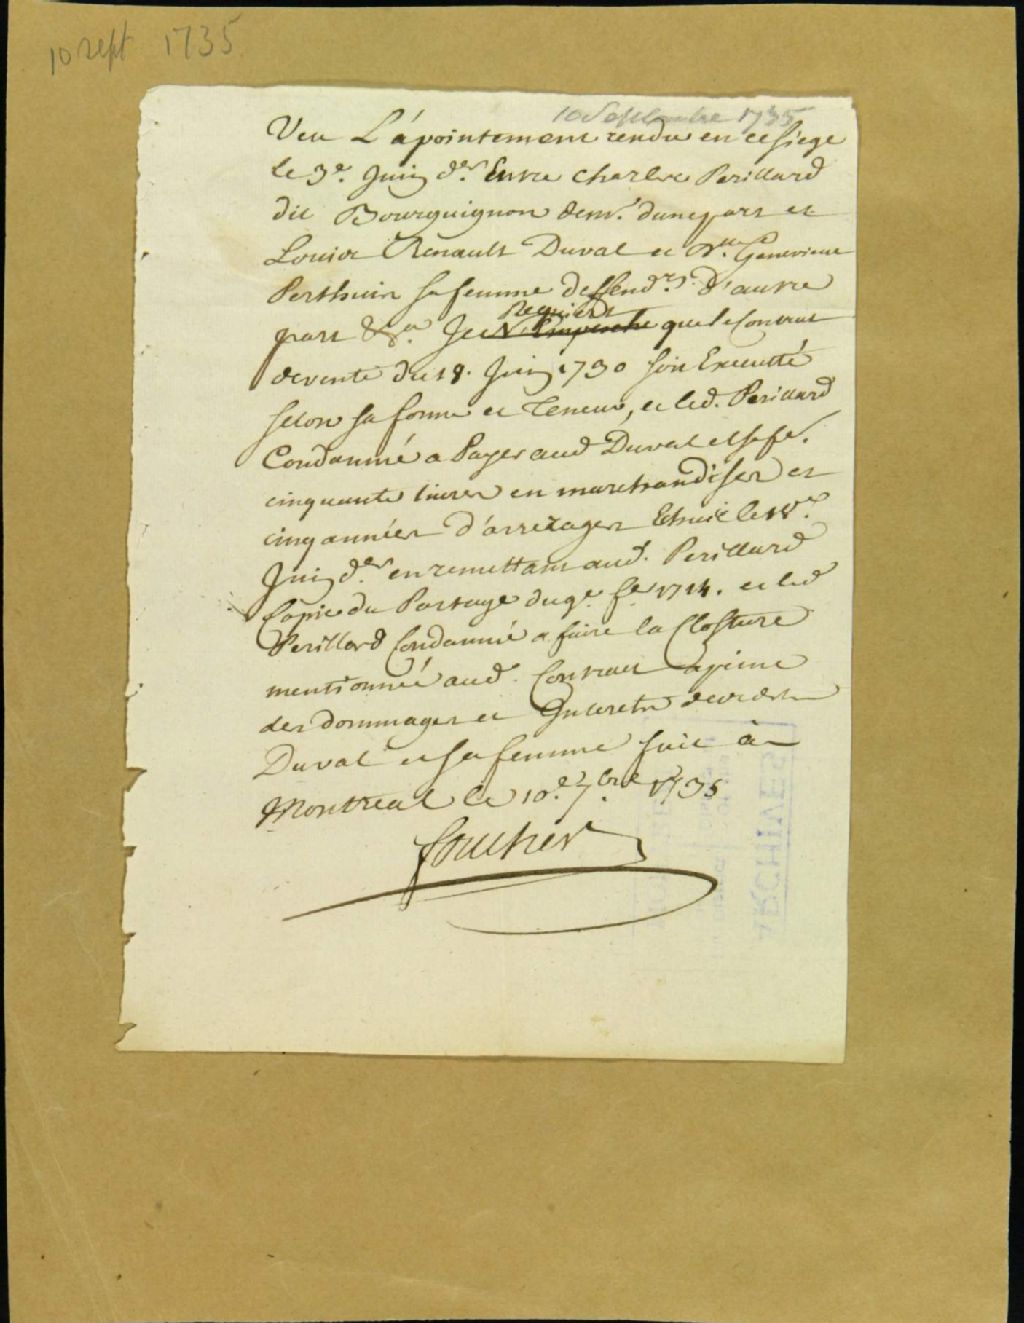 10 sept 1735
10 Septembre 1735
Veu L'apointement rendu en ce siege
le 3e. Juin der. Entre Charles Perillard
dit Bourguignon demr. d'une part et
Louis Renault Duval et Dlle Genevieve
Perthuis sa femme deffendrs. d'autre
part &a. Je Requiers que le Contrat
de vente du 18. Juin 1730 soit Executté
selon sa forme et Teneur, et led. Perillard
Condamné a Payer aud Duval et sa fe.
cinquante livres en marchandises et
cinq années d'arrerages Echuë le 18e.
Juin der. en remettant aud. Perillard
Copie du Partage du 9e. fe. 1714. et led
Perillard Condamné a faire la Closture
mentionnée aud. Contrat a peine
des dommages et Interets
Duval et sa femme fait à
Montreal le 10e. 7bre 1735
foucher
ARCHIVES